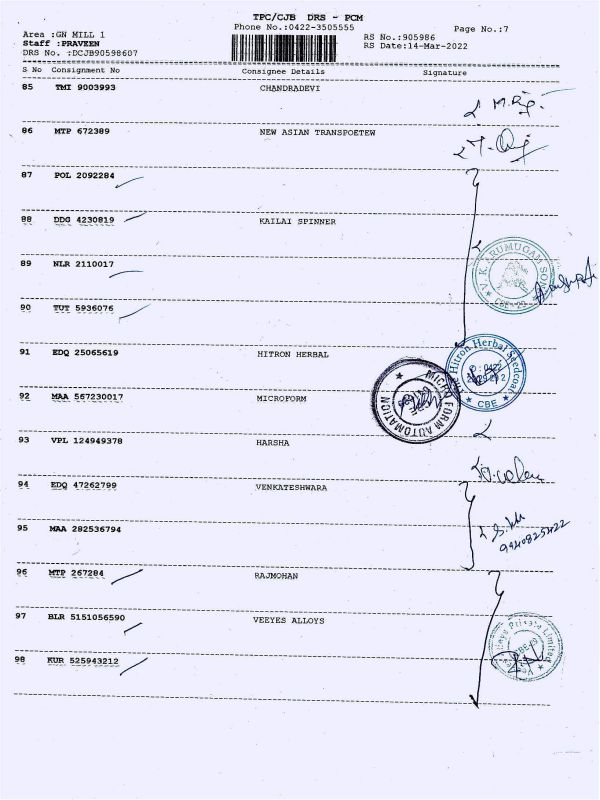 TPC/CJB DRS - PCM
Phone No.:0422-3505555
Page No.:7
Area :GN MILL 1
RS No.:905986
Staff :PRAVEEN
RS Date:14-Mar-2022
DRS No. :DCJB90598607
S No Consignment No Consignee Details Signature
85 TMI 9003993 CHANDRADEVI
86 MTP 672389 NEW ASIAN TRANSPOETEW
87 POL 2092284
88 DDG 4230819 KAILAI SPINNER
89 NLR 2110017
V. K. ARUMUGAM SON
CBE - 29
90 TUT 5936076
91 EDQ 25065619 HITRON HERBAL
Hitron Herbal Seedcoat
0422
CBE
92 MAA 567230017 MICROFORM
MICRO FORM AUTOMATION
93 VPL 124949378 HARSHA
94 EDQ 47262799 VENKATESHWARA
95 MAA 282536794
9940825422
96 MTP 267284 RAJMOHAN
97 BLR 5151056590 VEEYES ALLOYS
Private Limited
98 KUR 525943212